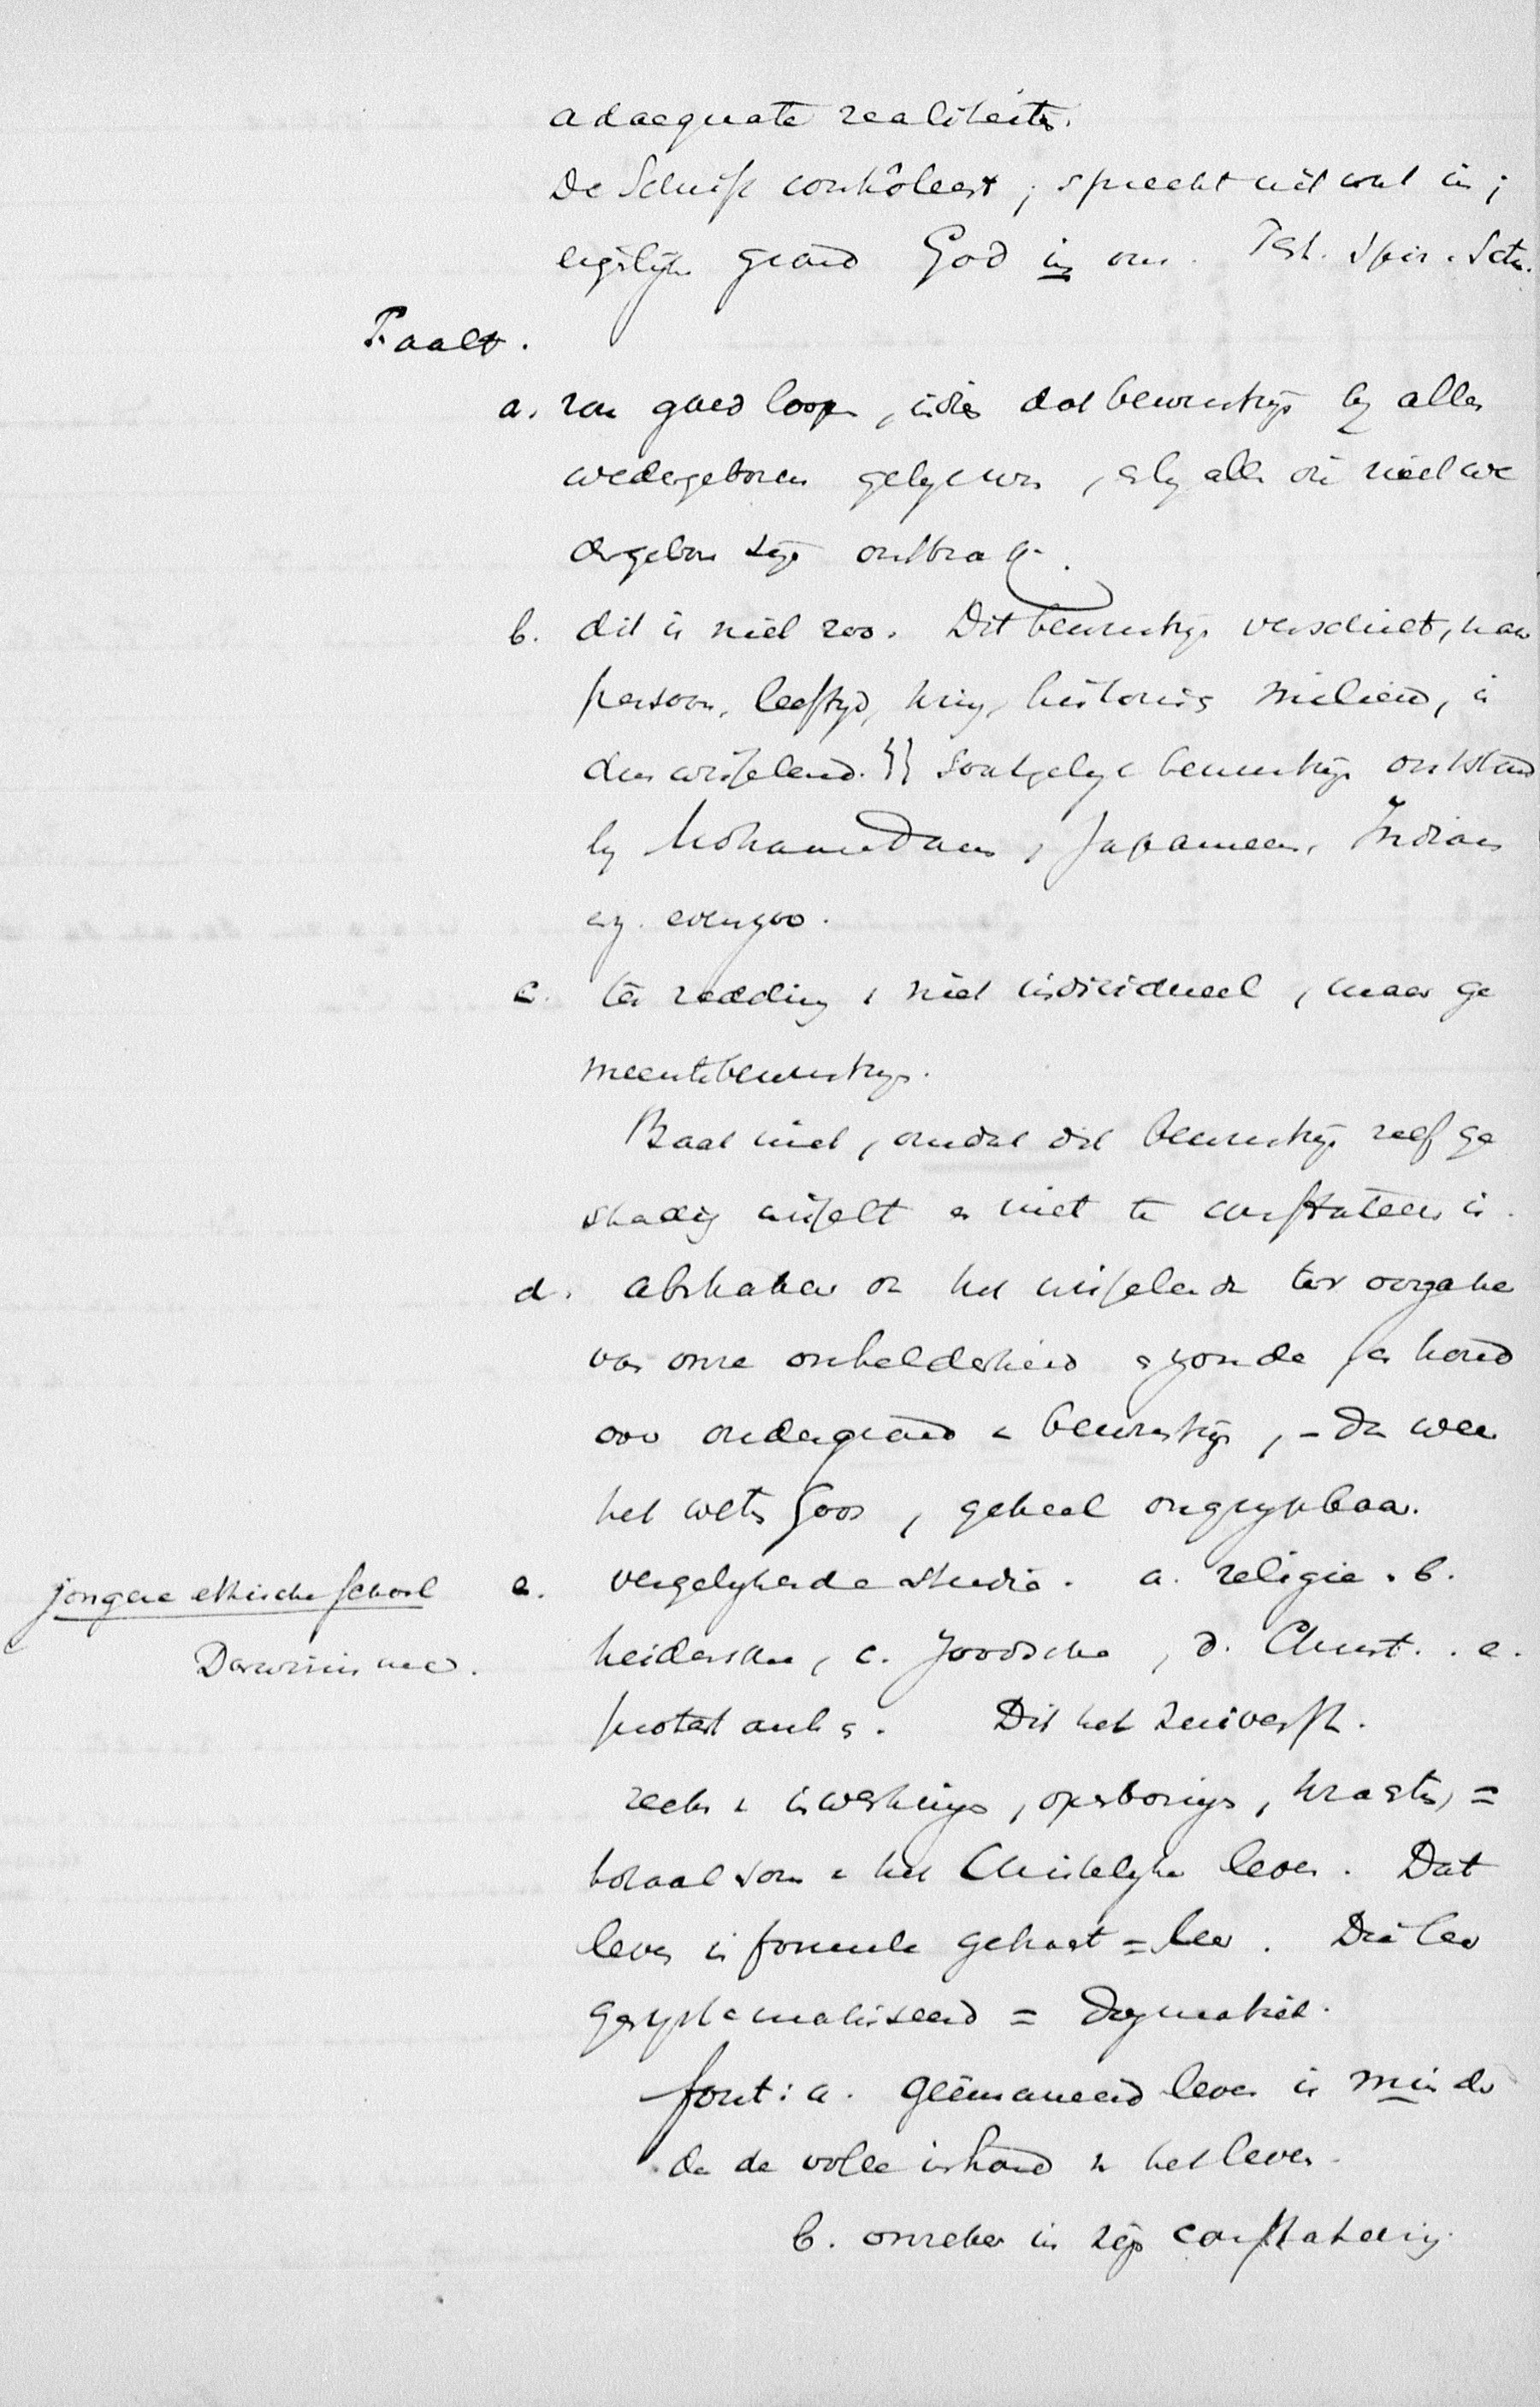 adaequate realiteit.
De Schrift contrôleert, spreekt niet wat in;
eigenlijke grond God in ons. Test. Spir. Scti.
Faalt.
a. zou goed loopen, indien dat bewustzijn by allen
wedergeboren gelyk was, en by alle die niet we
dergeboren zijn ontbrak.
b. dit is niet zoo. Dit bewustzijn verschilt, naar
persoon, leeftyd, kring, historisch milieu, is
dus wisselend. }} Soortgelyk bewustzijn ontstond
by Mohamedanen, Japaneezen, Indianen
enz. evenzoo.
c. ter redding, niet individueel, maar ge
meentebewustzijn.
Baat niet, omdat dit bewustzijn zelf ge
stadig wisselt en niet te constateeren is.
d. abstraheer dan het wisselende ter oorzake
van onze onhelderheid en zonde en houd
voor ondergrond v bewustzijn, – dan weer
het weten Gods, geheel ongrypbaar.
jongere ethische school
Darwinis me.
e. vergelykende studie. a. religie. b.
heidensche, c. Joodsche, d. Christ. . e.
protestants. Dit het zuiverst.
reeks v inwerkingen, openbaringen, krachten, =
totaal som v het Christelyke leven. Dat
leven in formule gebracht = leer. Die leer
gesystematiseerd = dogmatiek.
fout: a. geëmaneerd leven is minder
dan de volle inhoud v het leven.
b. onzeker in zijn constateering